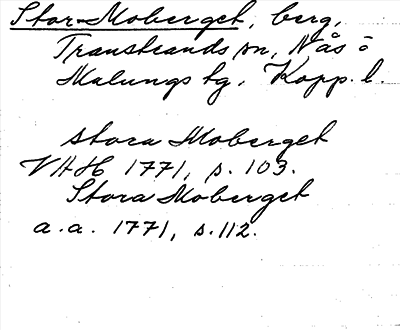 Stor-Moberget, berg,
Transtrands sn, Nås o
Malungs tg, Kopp. l.
stora Moberget
VAH 1771, s. 103.
Stora Moberget
a.a. 1771, s. 112.